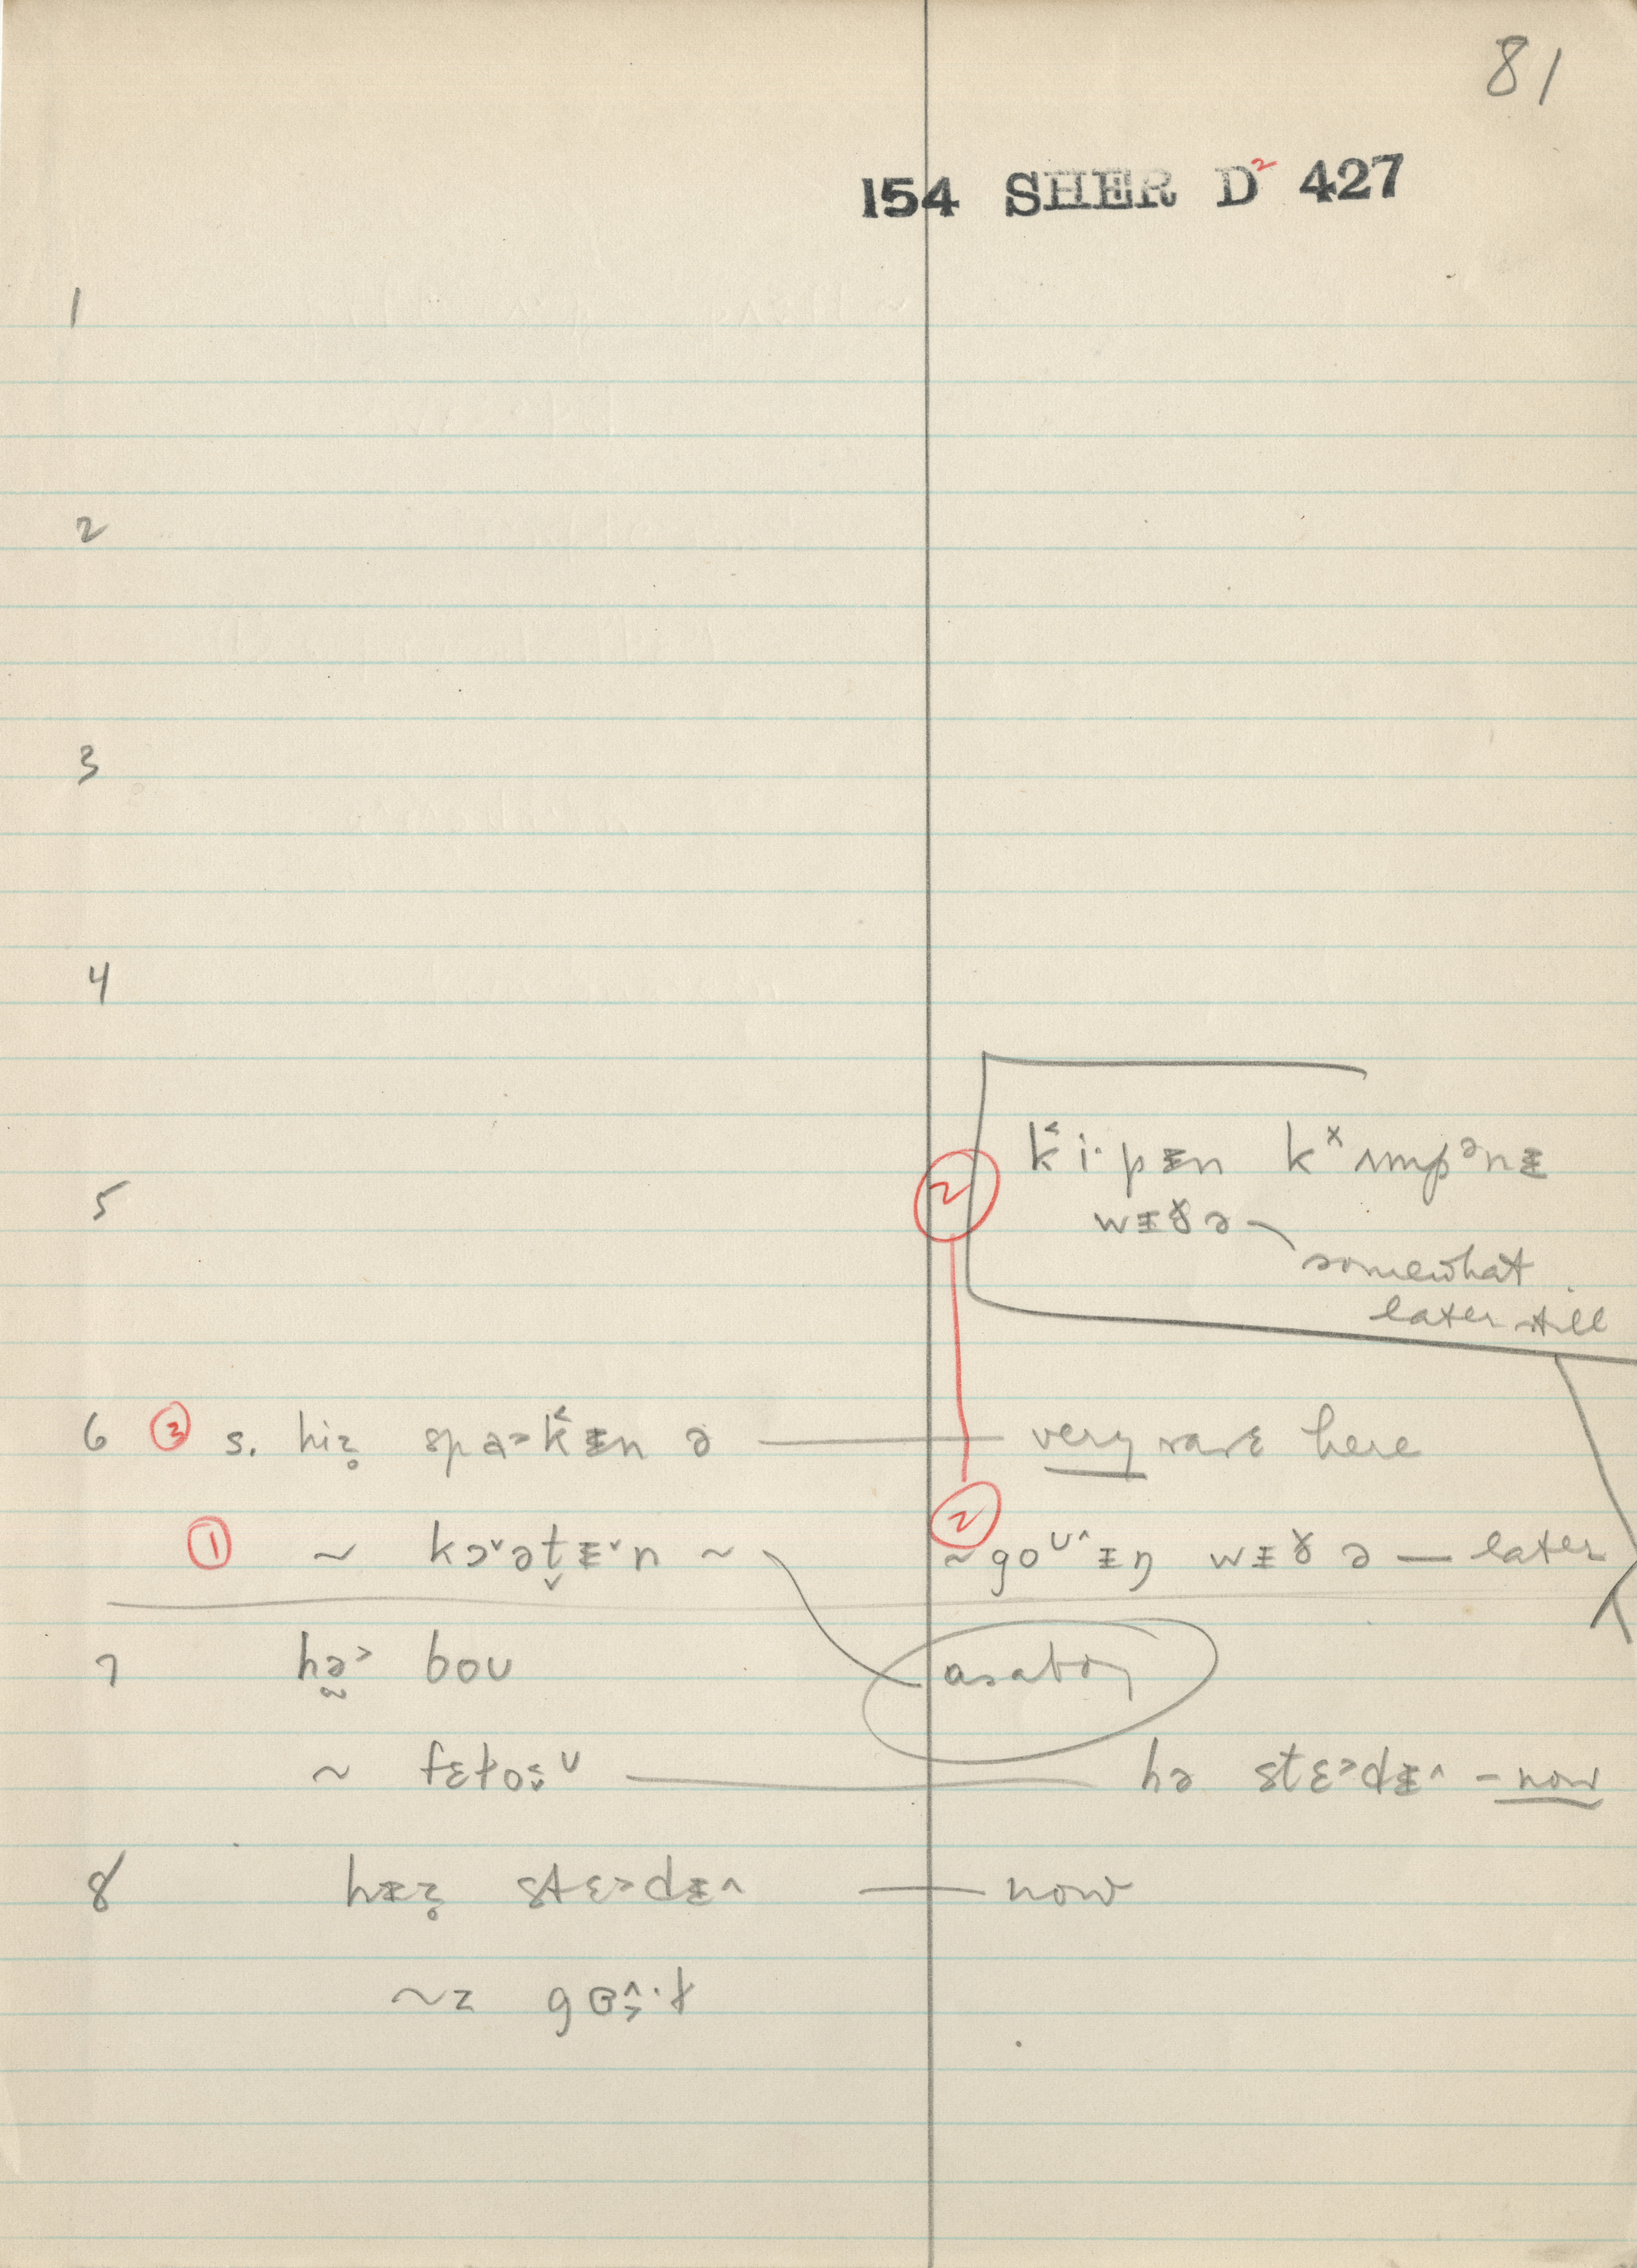 81
154 SHER D² 427
1
2
3
4
k˂i·pᵻn kˣʌmpᵊnᵻ
5 ②
wᵻɣə
somewhat
later still
6 ③ s. hiz̥ spɑ˃k˂ᵻn ə — very rare here
① ~ kɔˇət̬ᵻˇn ~ ② ~goʊ^ᵻŋ wᵻɣ ə — later
7 hə̰˃ boʊ as a boy
~ fɛɫo ʊ — hə stɛ˃dᵻ^ – now
8 hᵻz̥ stɛ˃dᵻ^ — now
~z gɵ^·ɫ